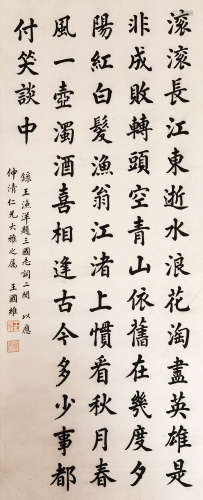 滾滾長江東逝水浪花淘盡英雄是
非成敗轉頭空青山依舊在幾度夕
陽紅白髮漁翁江渚上慣看秋月春
風一壺濁酒喜相逢古今多少事都
付笑談中
錄王漁洋題三國志詞二闋 以應
仲清仁兄大雅之屬 王國維